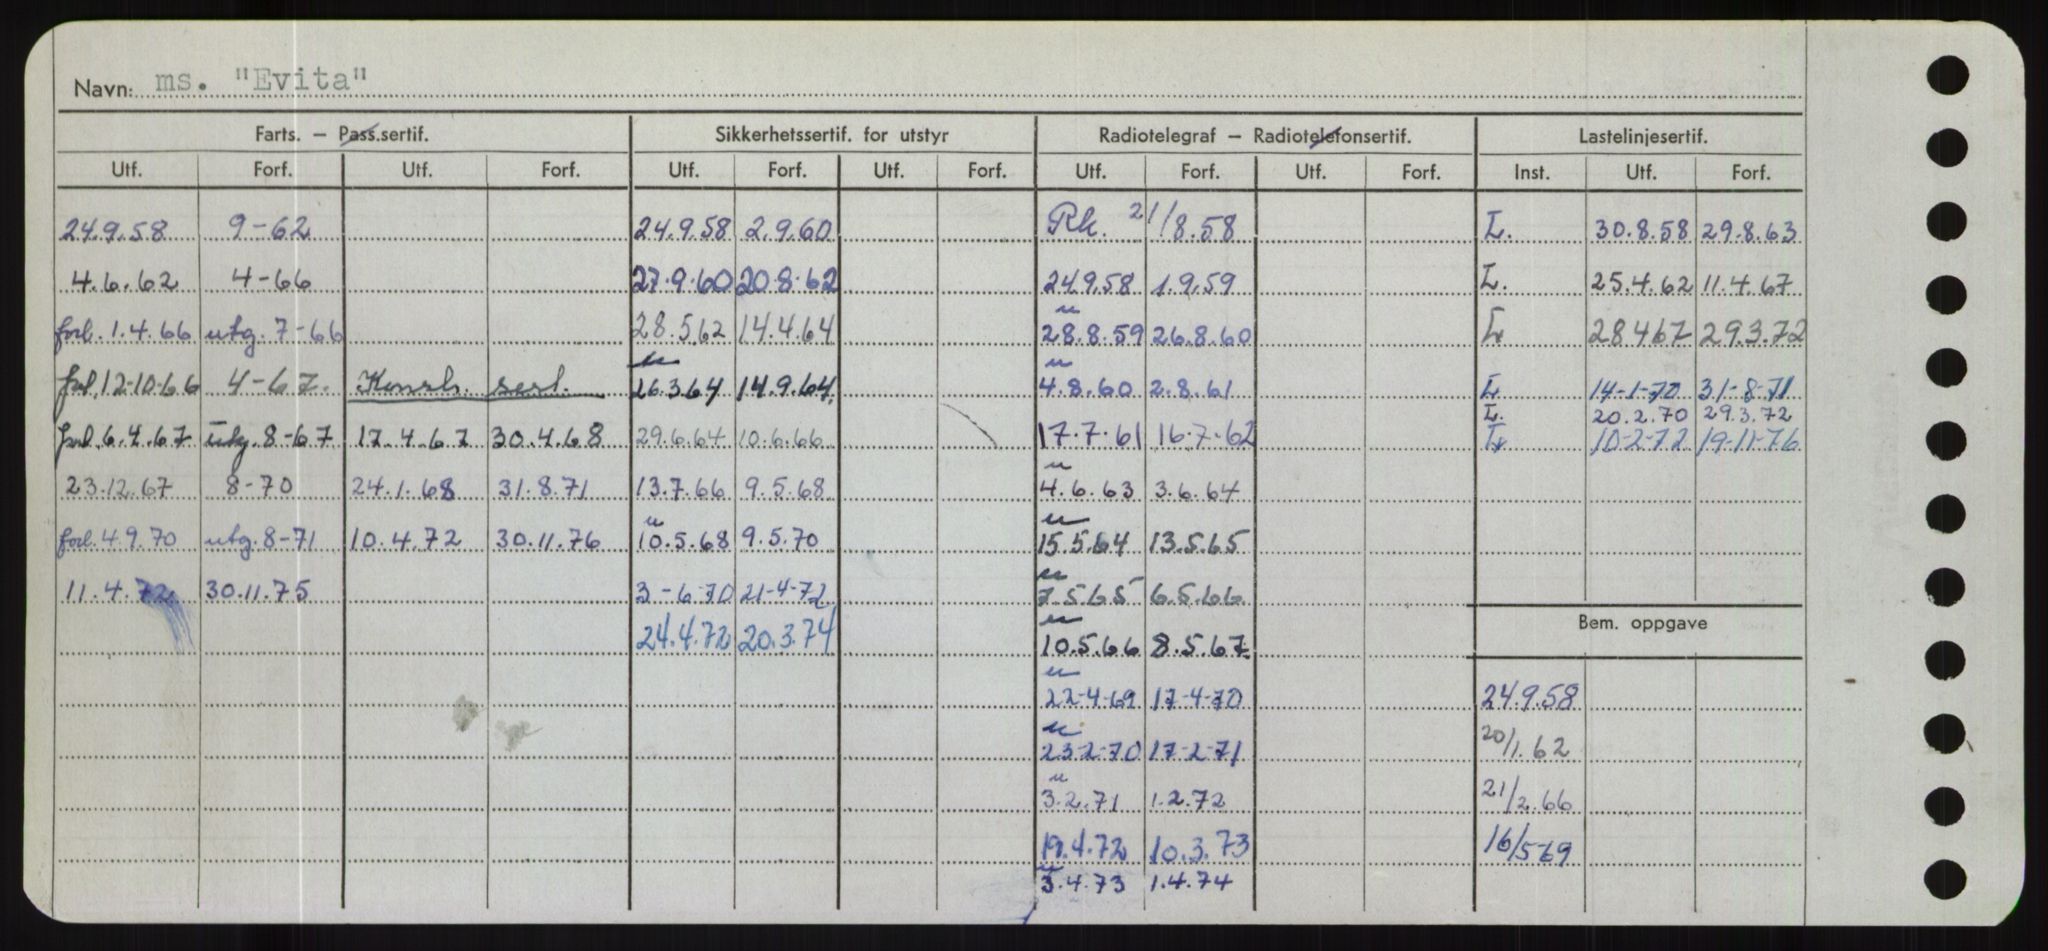 Navn: ms. "Evita"
Farts. – Pass.sertif. Sikkerhetssertif. for utstyr Radiotelegraf – Radiotelefonsertif. Lastelinjesertif.
Utf. Forf. Utf. Forf. Utf. Forf. Utf. Forf. Utf. Forf. Utf. Forf. Inst. Utf. Forf.
24.9.58 9-62 24.9.58 2.9.60 Rk. 21/8.58 L. 30.8.58 29.8.63
4.6.62 4-66 27.9.60 20.8.62 24.9.58 1.9.59 L. 25.4.62 11.4.67
forl. 1.4.66 utg. 7-66 28.5.62 14.4.64 28.8.59 26.8.60 L 28.4.67 29.3.72
forl. 12-10-66 4-67. Konstr. sert. 26.3.64 14.9.64 4.8.60 2.8.61 L 14-1-70 31-8-71
L. 20.2.70 29.3.72
forl. 6.4.67 utg. 8-67 17.4.67 30.4.68 29.6.64 10.6.66 17.7.61 16.7.62 L 10-2-72 19-11-76
23.12.67 8-70 24.1.68 31.8.71 13.7.66 9.5.68 4.6.63 3.6.64
forl. 4.9.70 utg. 8-71 10.4.72 30.11.76 10.5.68 9.5.70 15.5.64 13.5.65
11.4.72 30.11.75 3-6-70 21-4-72 7.5.65 6.5.66
24.4.72 20.3.74 10.5.66 8.5.67
Bem. oppgave
22-4-69 17-4-70 24.9.58
23-2-70 17-2-71 20/1.62
3.2.71 1.2.72 21/2.66
19.4.72 10.3.73 16/5-69
3.4.73 1.4.74